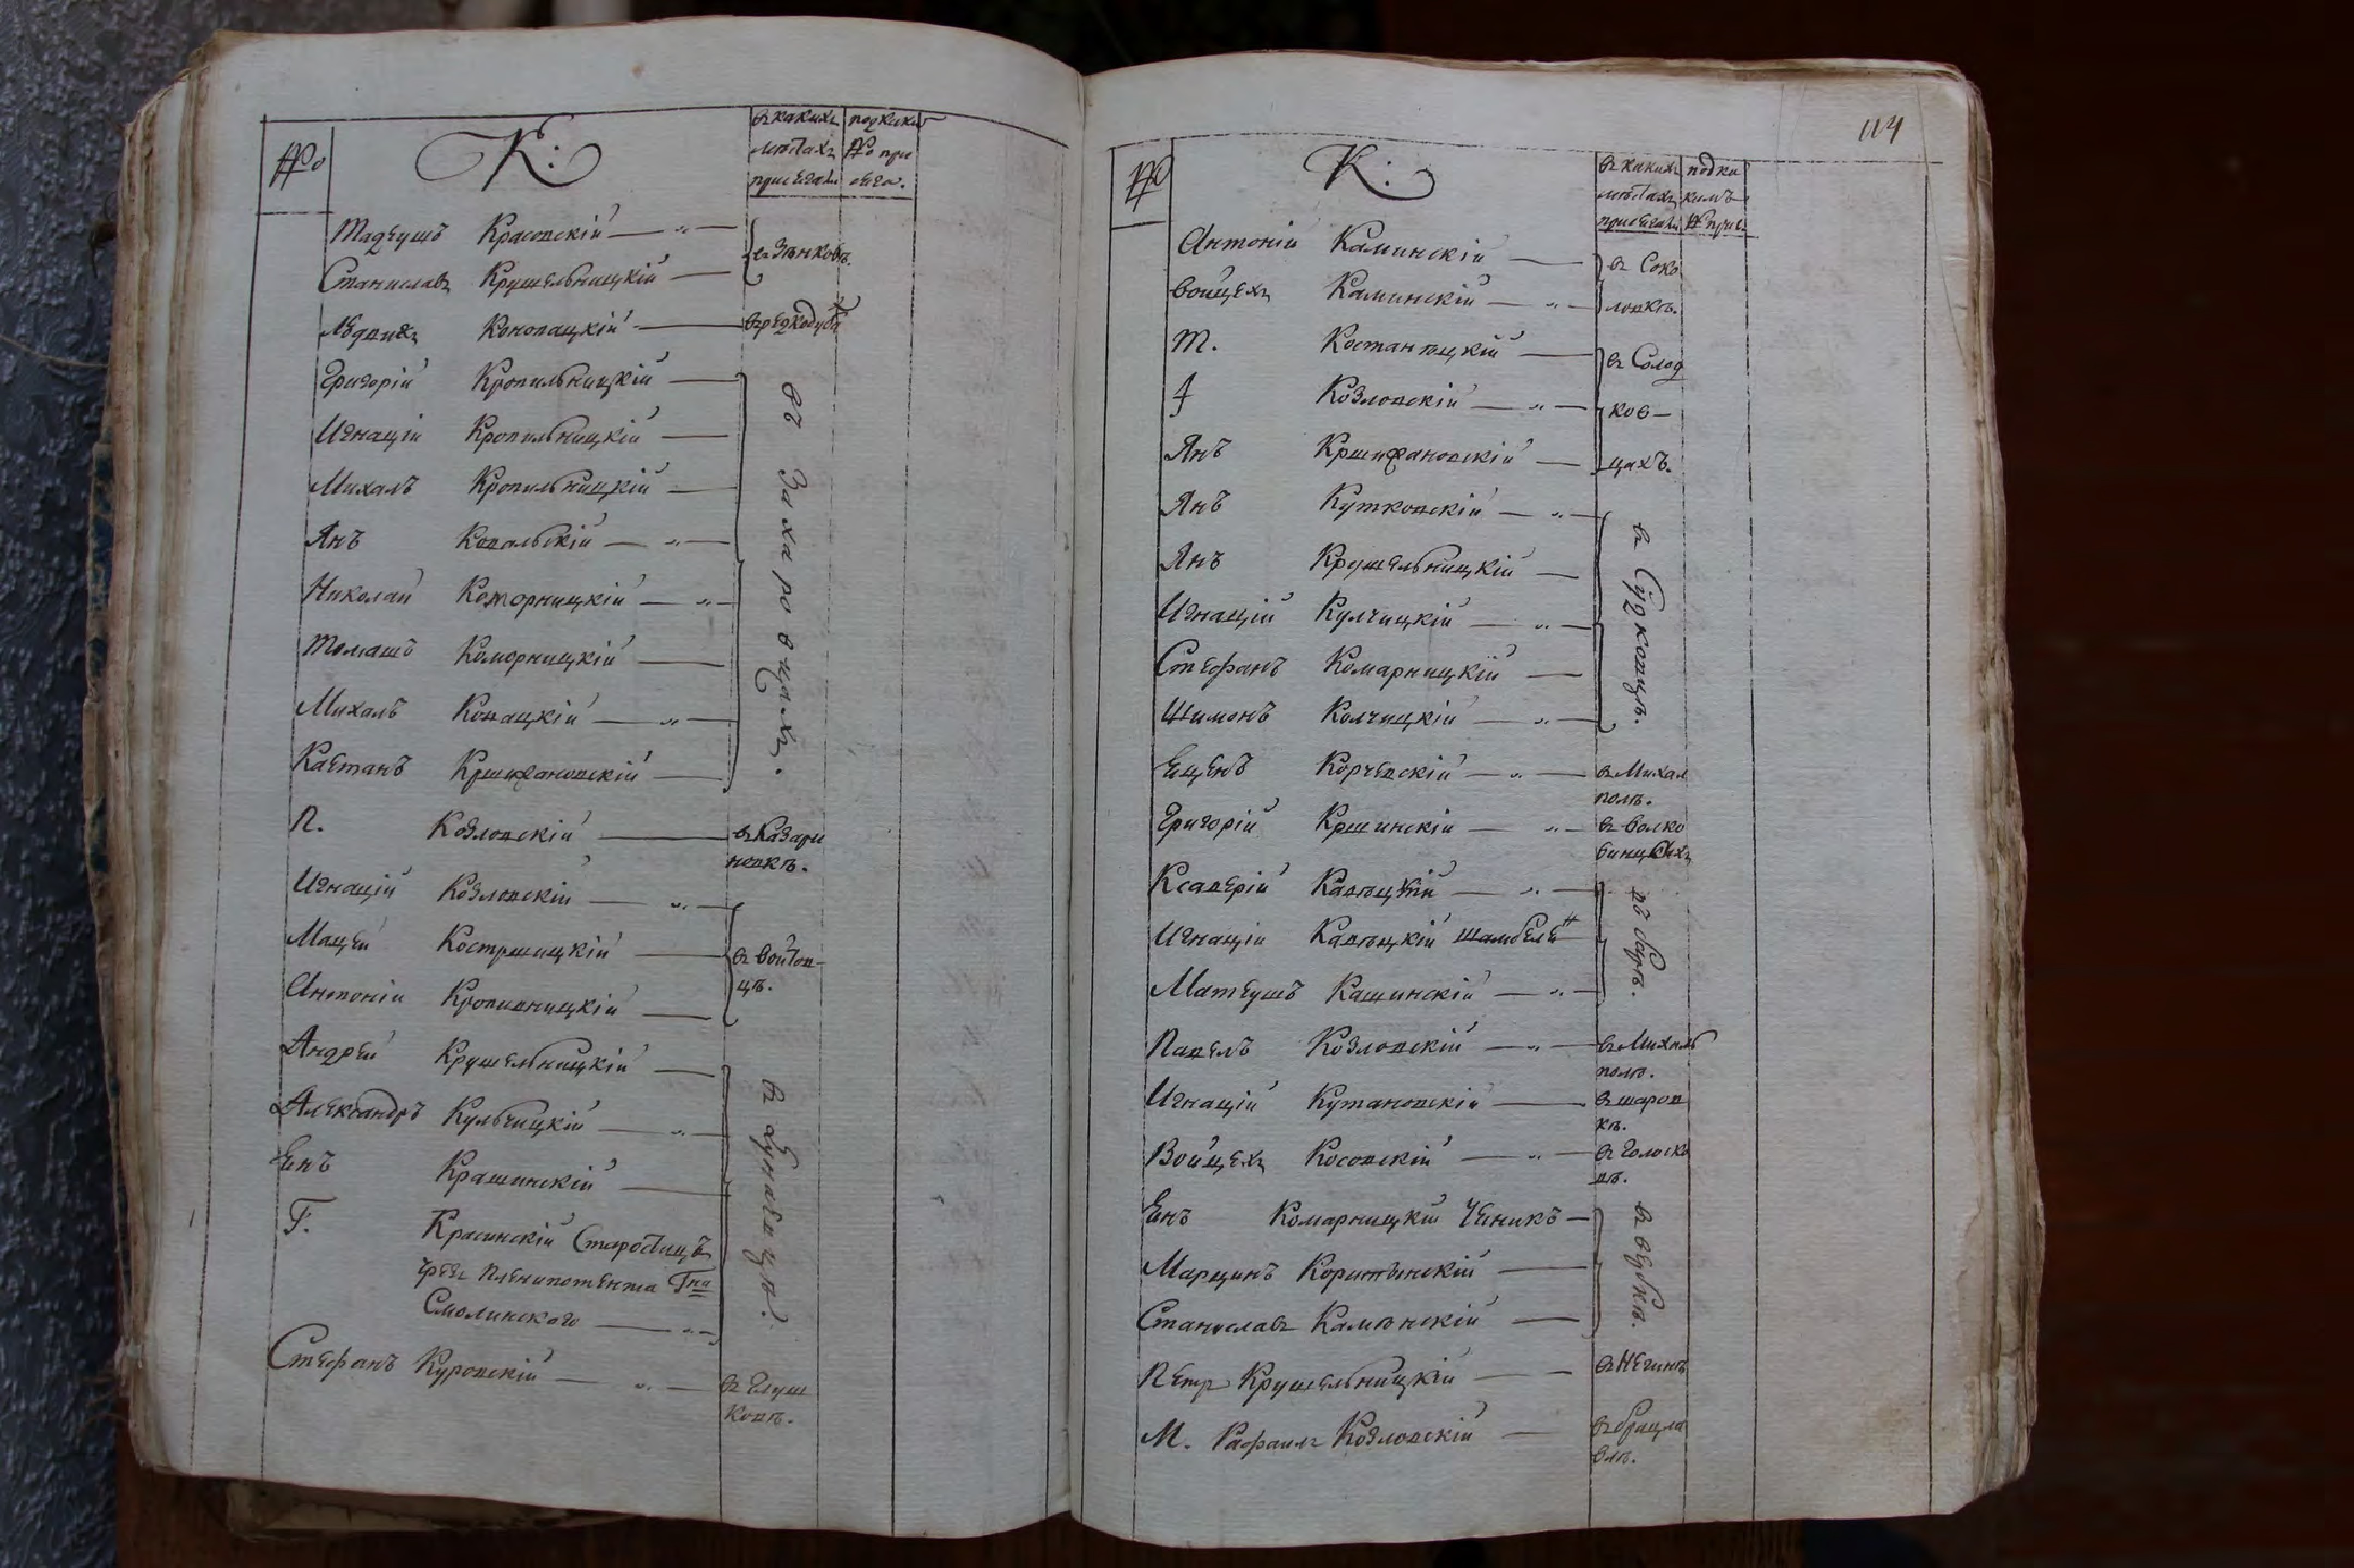 № К: въ какихъ мѣстахъ присягали подъ какимъ № присяга.
Тадеушъ Красовскій — „ — въ Зѣнковѣ.
Станиславъ Крушельницкій —
Людвихъ Конопацкій —
Григорій Кропильницкій — въ Захаровцахъ.
Игнацій Кропильницкій —
Михалъ Кропильницкій —
Янъ Ковальскій — „ —
Николай Коморницкій — „ —
Томашъ Коморницкій —
Михалъ Ковацкій — „ —
Каетанъ Кршижановскій —
П. Козловскій — въ Казари
новкѣ.
Игнацій Козловскій — „ —
Мацей Костршицкій — въ Войтов-
цѣ.
Антоній Кропивницкій —
Андрей Крушельницкій —
Александръ Кульчицкій — „ —
Енъ Крашинскій —
Г. Красинскій Старостицъ
чрезъ Пленипотента Гна
Смолинского — „ —
Стефанъ Куровскій — „ — въ Глуш
ковѣ.
114
№ К: въ какихъ мѣстахъ присягали подъ какимъ № прис.
Антоній Каминскій — въ Соко
Войцехъ Каминскій — „ — ловкѣ.
Т. Костантецкій — въ Солод
Козловскій — „ — ков-
Янъ Кршижановскій — цахъ.
Янъ Кутковскій — „ — въ Судковцѣ.
Янъ Крушельницкій —
Игнацій Кулчицкій — „ —
Стефанъ Комарницкій —
Шимонъ Колчицкій — „ —
Ецентъ Корчевскій — „ — въ Михал
полѣ.
Григорій Кршинскій — „ — въ Волко
бинцахъ
Ксаверій Кавецкій — „ — въ Барѣ.
Игнацій Кавецкій Шамбеля
Матеушъ Кашинскій — „ —
Павелъ Козловскій — „ — въ Михаль
полю.
Игнацій Кутановскій — въ Шаров
кѣ.
Войцехъ Косовскій — „ — въ Голоско
вѣ.
Енъ Комарницкій Чесникъ —
Марцинъ Корытынскій —
Станиславъ Каменскій —
Петръ Крушельницкій — въ Негинѣ
М. Рафаилъ Козловскій — въ Брацла
влѣ.